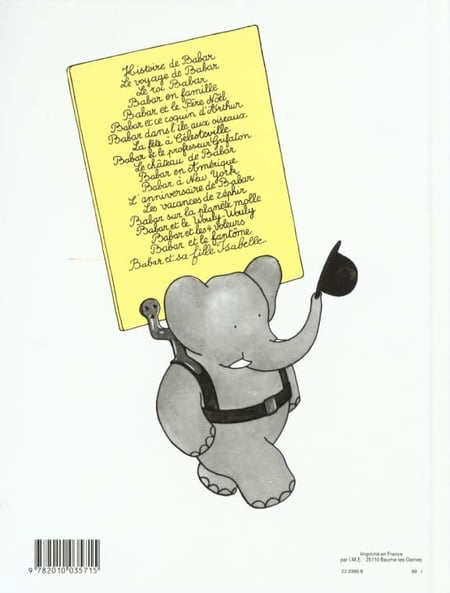 Histoire de Babar
Le voyage de Babar
Le roi Babar
Babar en famille
Babar et le Père Noël
Babar et ce coquin d'Arthur
Babar dans l'île aux oiseaux
La fête à Célesteville
Babar et le professeur Grifaton
Le château de Babar
Babar en Amérique
Babar à New York
L'anniversaire de Babar
Les vacances de zéphir
Babar sur la planète molle
Babar et le Wouly-Wouly
Babar et les 4 voleurs
Babar et le fantôme
Babar et sa fille Isabelle
Imprimé en France
par I.M.E. - 25110 Baume-les-Dames
22.0390.8 99 - I
9 782010 035715